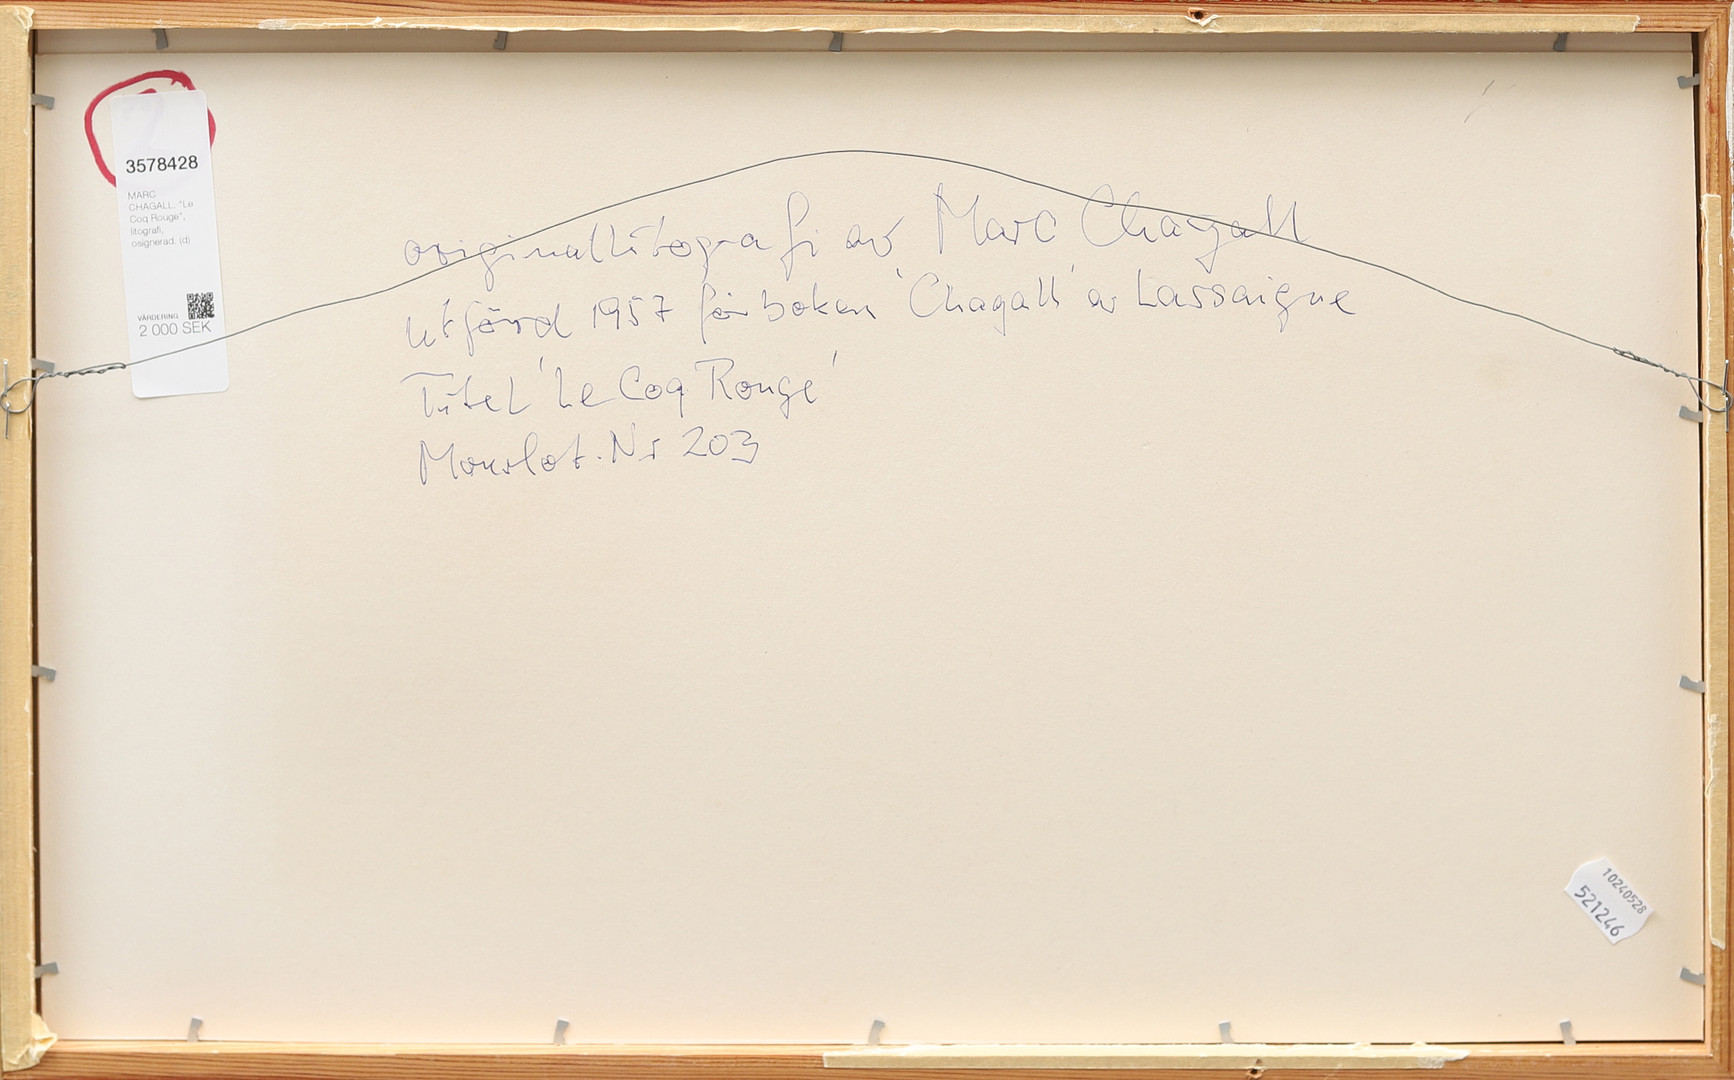 3578428
MARC
CHAGALL. "Le
Coq Rouge",
litografi,
osignerad. (d)
VÄRDERING
2 000 SEK
originallitografi av Marc Chagall
utförd 1957 för boken 'Chagall' av Lassaigne
Titel 'Le Coq Rouge'
Mourlot. Nr 203
10240528
521246